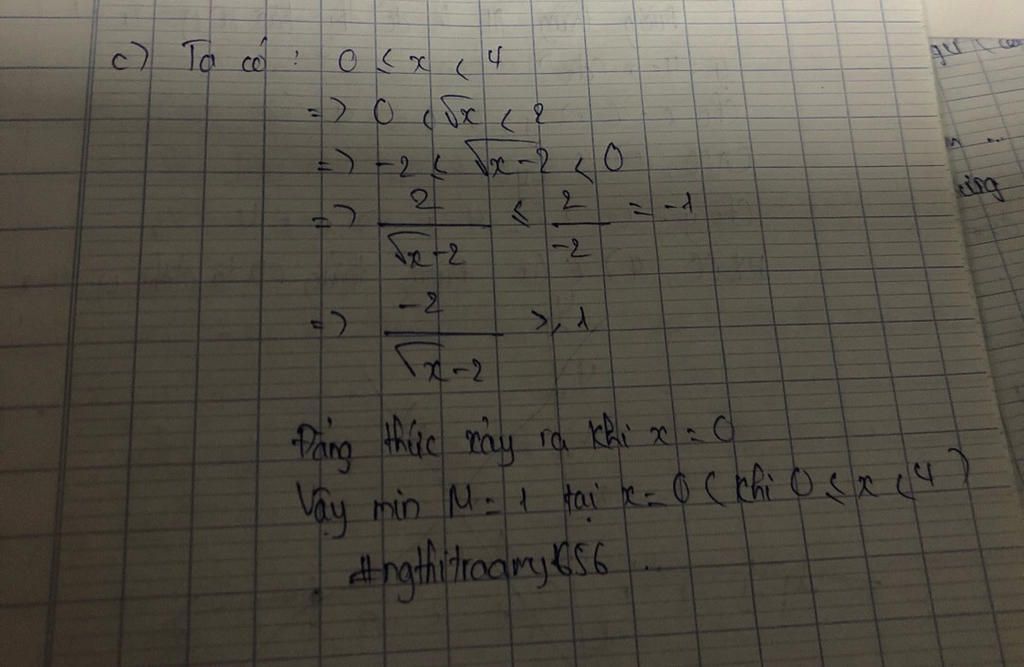 c) Ta có : 0 ≤ x < 4
=> 0 ≤ √x < 2
=> -2 ≤ √x-2 < 0
=> 2/(√x-2) ≤ 2/-2 = -1
=> -2/(√x-2) ≥ 1
Đẳng thức xảy ra khi x = 0
Vậy min M = 1 tại x = 0 ( khi 0 ≤ x < 4 )
#ngthitraamy1656